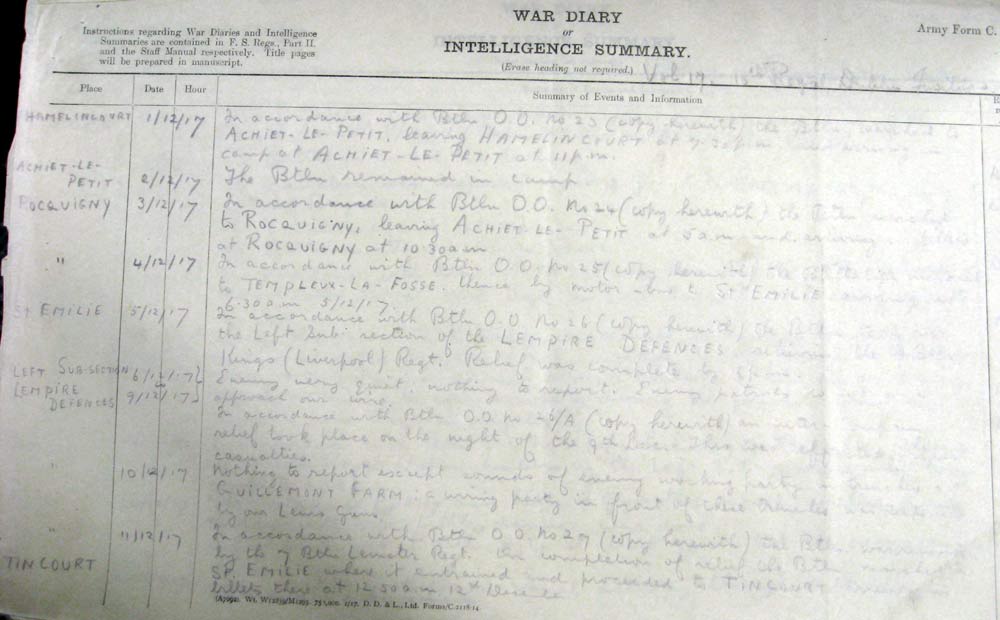 WAR DIARY
or
INTELLIGENCE SUMMARY.
(Erase heading not required.)
Army Form C.
Instructions regarding War Diaries and Intelligence
Summaries are contained in F. S. Regs., Part II.
and the Staff Manual respectively. Title pages
will be prepared in manuscript.
Vol 17.
Place Date Hour Summary of Events and Information
HAMELINCOURT 1/12/17 In accordance with Btln O.O. No 23 (copy herewith) the Btln marched to
ACHIET-LE-PETIT, leaving HAMELINCOURT at 7.30 p.m. and arriving in
camp at ACHIET-LE-PETIT at 11 p.m.
ACHIET-LE-
PETIT 2/12/17 The Btln remained in camp.
ROCQUIGNY 3/12/17 In accordance with Btln O.O. No 24 (copy herewith) the Btln marched
to ROCQUIGNY, leaving ACHIET-LE-PETIT at 5 a.m. and arriving
at ROCQUIGNY at 10.30 a.m
" 4/12/17 In accordance with Btln O.O. No 25 (copy herewith) the
to TEMPLEUX-LA-FOSSE. thence by motor bus to ST EMILIE arriving
6.30 a.m 5/12/17.
ST EMILIE 5/12/17 In accordance with Btln O.O No 26 (copy herewith) the Btln
the Left Sub-section of the LEMPIRE DEFENCES, relieving the
Kings (Liverpool) Regt. Relief was complete by 6 p.m.
LEFT SUB-SECTION 6/12/17 Enemy very quiet, nothing to report. Enemy patrols
LEMPIRE
DEFENCES 9/12/17 approach our wire.
In accordance with Btln O.O. No 26/A (copy herewith) an inter
relief took place on the night of the 9th Dec. This was
casualties.
" 10/12/17 Nothing to report except sounds of enemy working party in trenches
GUILLEMONT FARM: a wiring party in front of these trenches was
by our Lewis Guns
" 11/12/17 In accordance with Btln O.O. No 27 (copy herewith) the Btln
by the 7 Btln Leinster Regt. On completion of relief the Btln
TINCOURT ST. EMILIE where it entrained and proceeded to TINCOURT
billets there at 12.50 a.m 12th
(A7092). Wt. W12839/M1293. 75,000. 1/17. D. D. & L., Ltd. Forms/C.2118.14